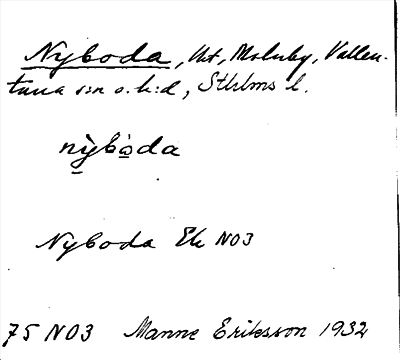 Nyboda, Ut, Molnby, Vallen-
tuna sn o. h:d, Sthlms l.
nỳ̠bo̠da
Nyboda Ek NO3
75 NO3 Manne Eriksson 1932